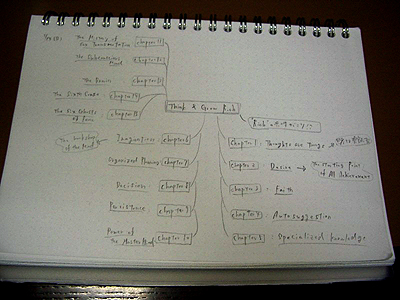 The Mystery of
Sex Transmutation
chapter 11
The Subconscious
Mind
chapter 12
The Brain
chapter 13
The Sixth Sense
chapter 14
The Six Ghosts
of Fear
chapter 15
Think & Grow Rich
The Workshop
of the Mind
Imagination
chapter 6
Organized Planning
chapter 7
Decision
chapter 8
Persistence
chapter 9
Power of
the Master Mind
chapter 10
Chapter 1 : Thoughts are Things
chapter 2 : Desire → The Starting Point
of All Achievement
chapter 3 : Faith
chapter 4 : Autosuggestion
chapter 5 : Specialized Knowledge